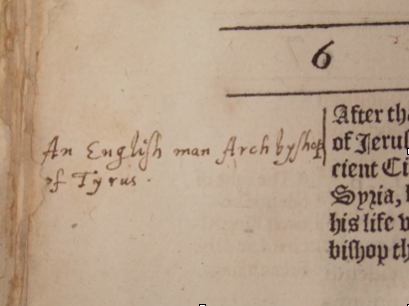 6
An English man Archbyshop
of Tyrus.
After th
of Jerus
cient Ci
Syria,
his life
bishop th